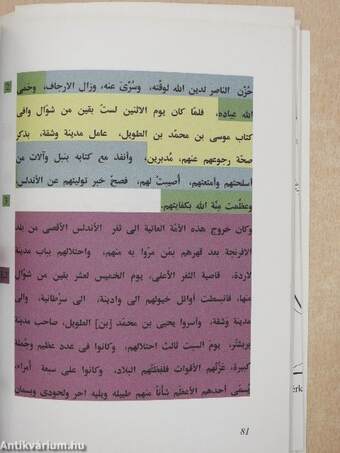 حُزْن الناصر لدين الله لوقْته، وسُرِّىَ عنه، وزال الارجاف، وحَمى
2
الله عباده، فلمّا كان يوم الاثنين لستّ بقين من شوّال وافى
كتاب موسى بن محمّد بن الطويل، عامل مدينة وشقة، بذكر
صحّة رجوعهم عنهم، مُدبرين، وأنفذ مع كتابه بنبل وآلات من
اسلحتهم وأمتعتهم، أُصيبتْ لهم، فصحّ خبر توليتهم عن الأندلس
وعظُمت مِنّة الله بكفايتهم.
وكان خروج هذه الأمّة العاتية الى ثغر الأندلس الأقصى من بلد
الافرنجة بعد قهرهم بمَن مرّوا به منهم، واحتلالهم بباب مدينة
لاردة، قاصية الثغر الأعلى، يوم الخميس لعشر بقين من شوّال
منها، فانبسطت أوائل خيولهم الى وادينة، الى سرْطانية، والى
مدينة وشقة، وأسروا يحيى بن محمّد [بن] الطويل، صاحب مدينة
بربشْتر، يوم السبت ثالث احتلالهم، وكانوا في عدد عظيم وجُملة
كبيرة، عزّتْهم الأقوات فلفظتْهم البلاد، وكانوا على سبعة أُمراء،
يُسمّى أحدهم الأعظم شأنًا منهم طبيله ويليه احر ولحودى وبسمان
81
Antikvarium.hu
érk